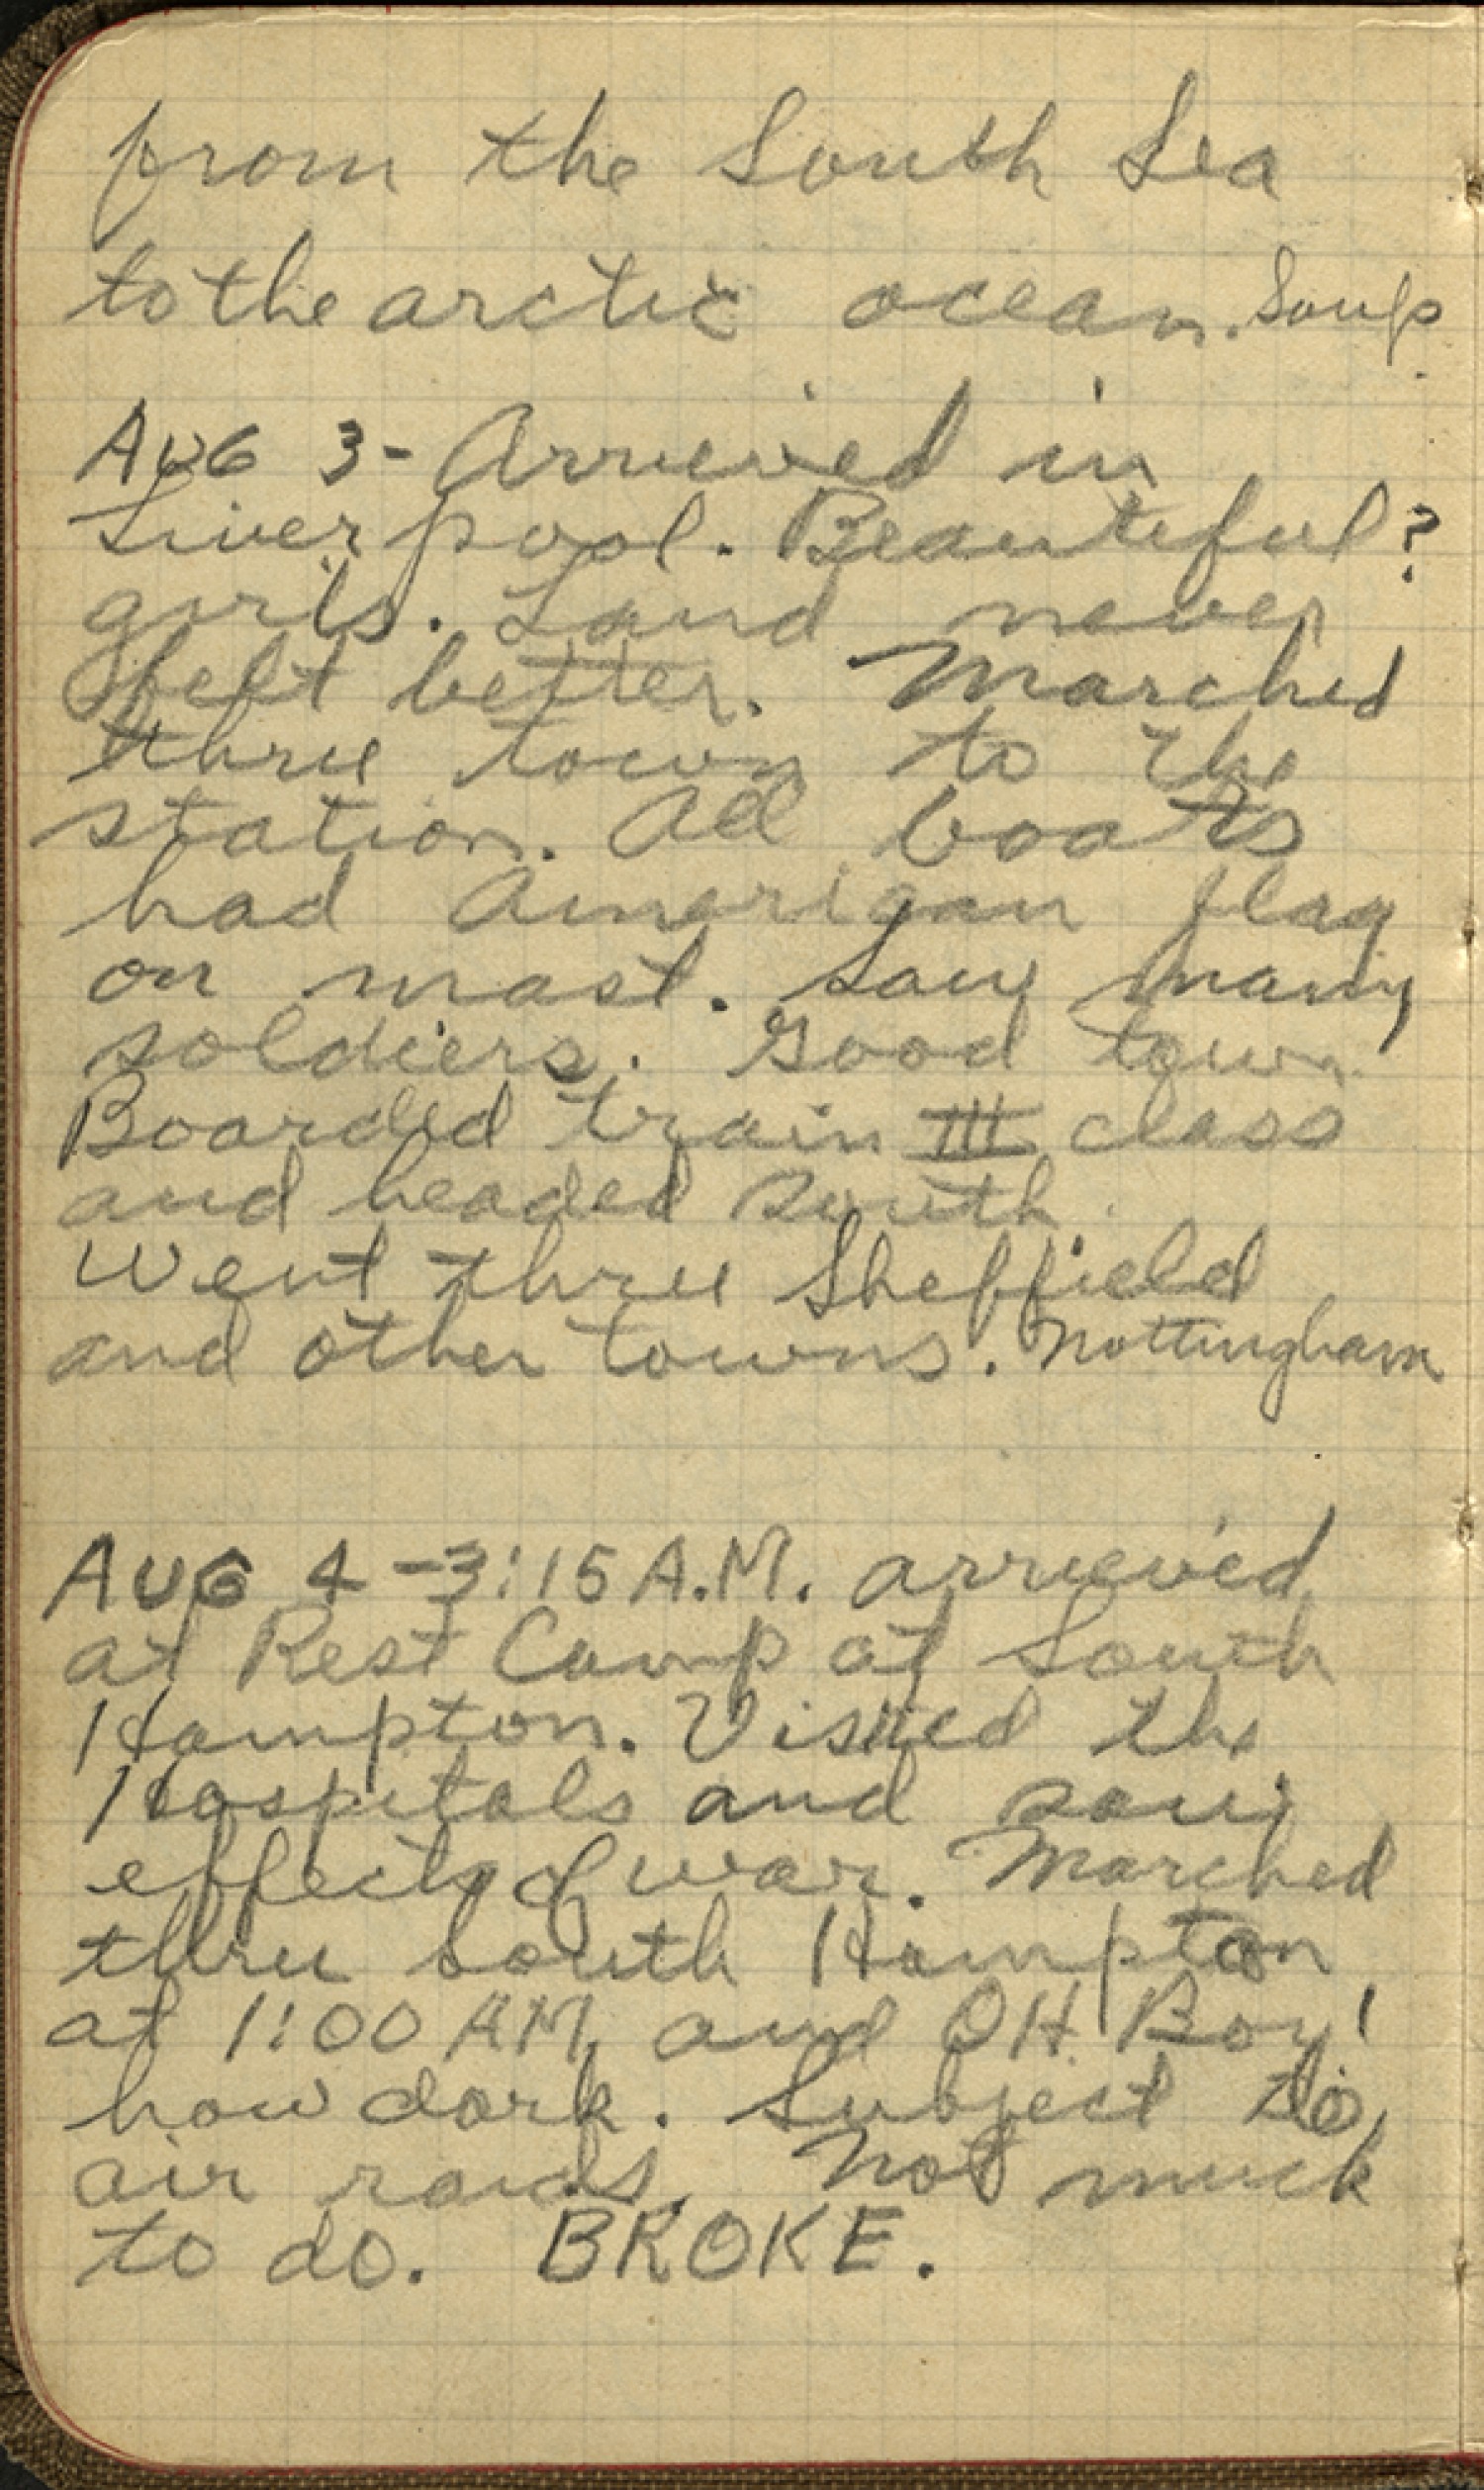 from the South Sea
to the arctic ocean. Soup
AUG 3 - Arrieved in
Liverpool. Beautiful?
girls. Land never
felt better. Marched
thru town to the
station. All boats
had American flag
on mast. Saw many
soldiers. Good town.
Boarded train III class
and headed south.
Went thru Sheffield
and other towns. Nottingham
AUG 4 - 3:15 A.M. arrieved
at Rest Camp at South
Hampton. Visited the
Hospitals and saw
effects of war. Marched
thru South Hampton
at 1:00 AM, and OH Boy!
how dark. Subject to
air raids. Not much
to do. BROKE.